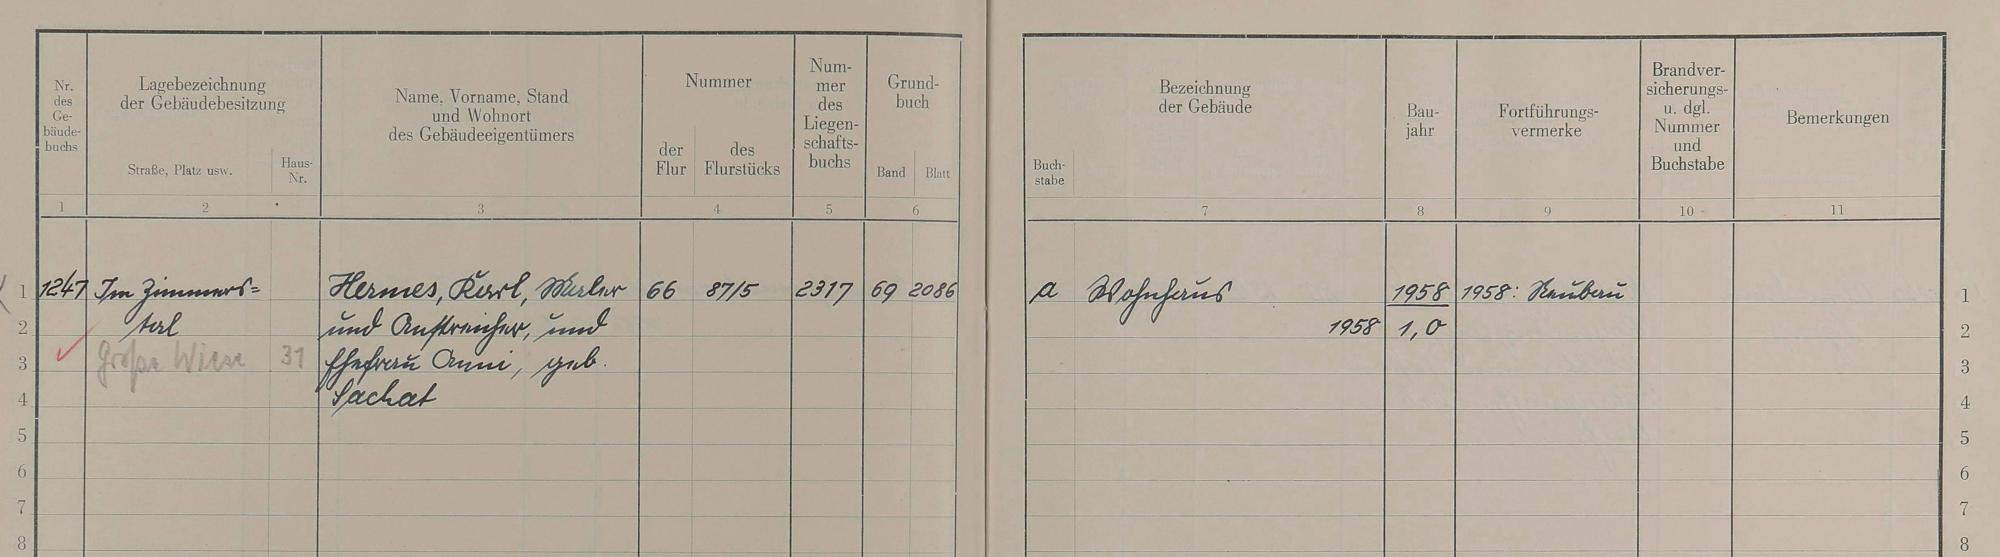 Nr.
des
Ge-
bäude-
buchs
Lagebezeichnung
der Gebäudebesitzung
Straße, Platz usw.
Haus-
Nr.
Name, Vorname, Stand
und Wohnort
des Gebäudeeigentümers
Nummer
der
Flur
des
Flurstücks
Num-
mer
des
Liegen-
schafts-
buchs
Grund-
buch
Band
Blatt
1 2 3 4 5 6
1 1247 Im Zimmers= Hermes, Karl, Maler 66 87/5 2317 69 2086
2 tal und Anstreicher, und
3 Große Wiese 31 Ehefrau Anni, geb.
4 Sachat
5
6
7
8
Buch-
stabe
Bezeichnung
der Gebäude
Bau-
jahr
Fortführungs-
vermerke
Brandver-
sicherungs-
u. dgl.
Nummer
und
Buchstabe
Bemerkungen
7 8 9 10 11
a Wohnhaus 1958 1958: Neubau 1
1958 1,0 2
3
4
5
6
7
8